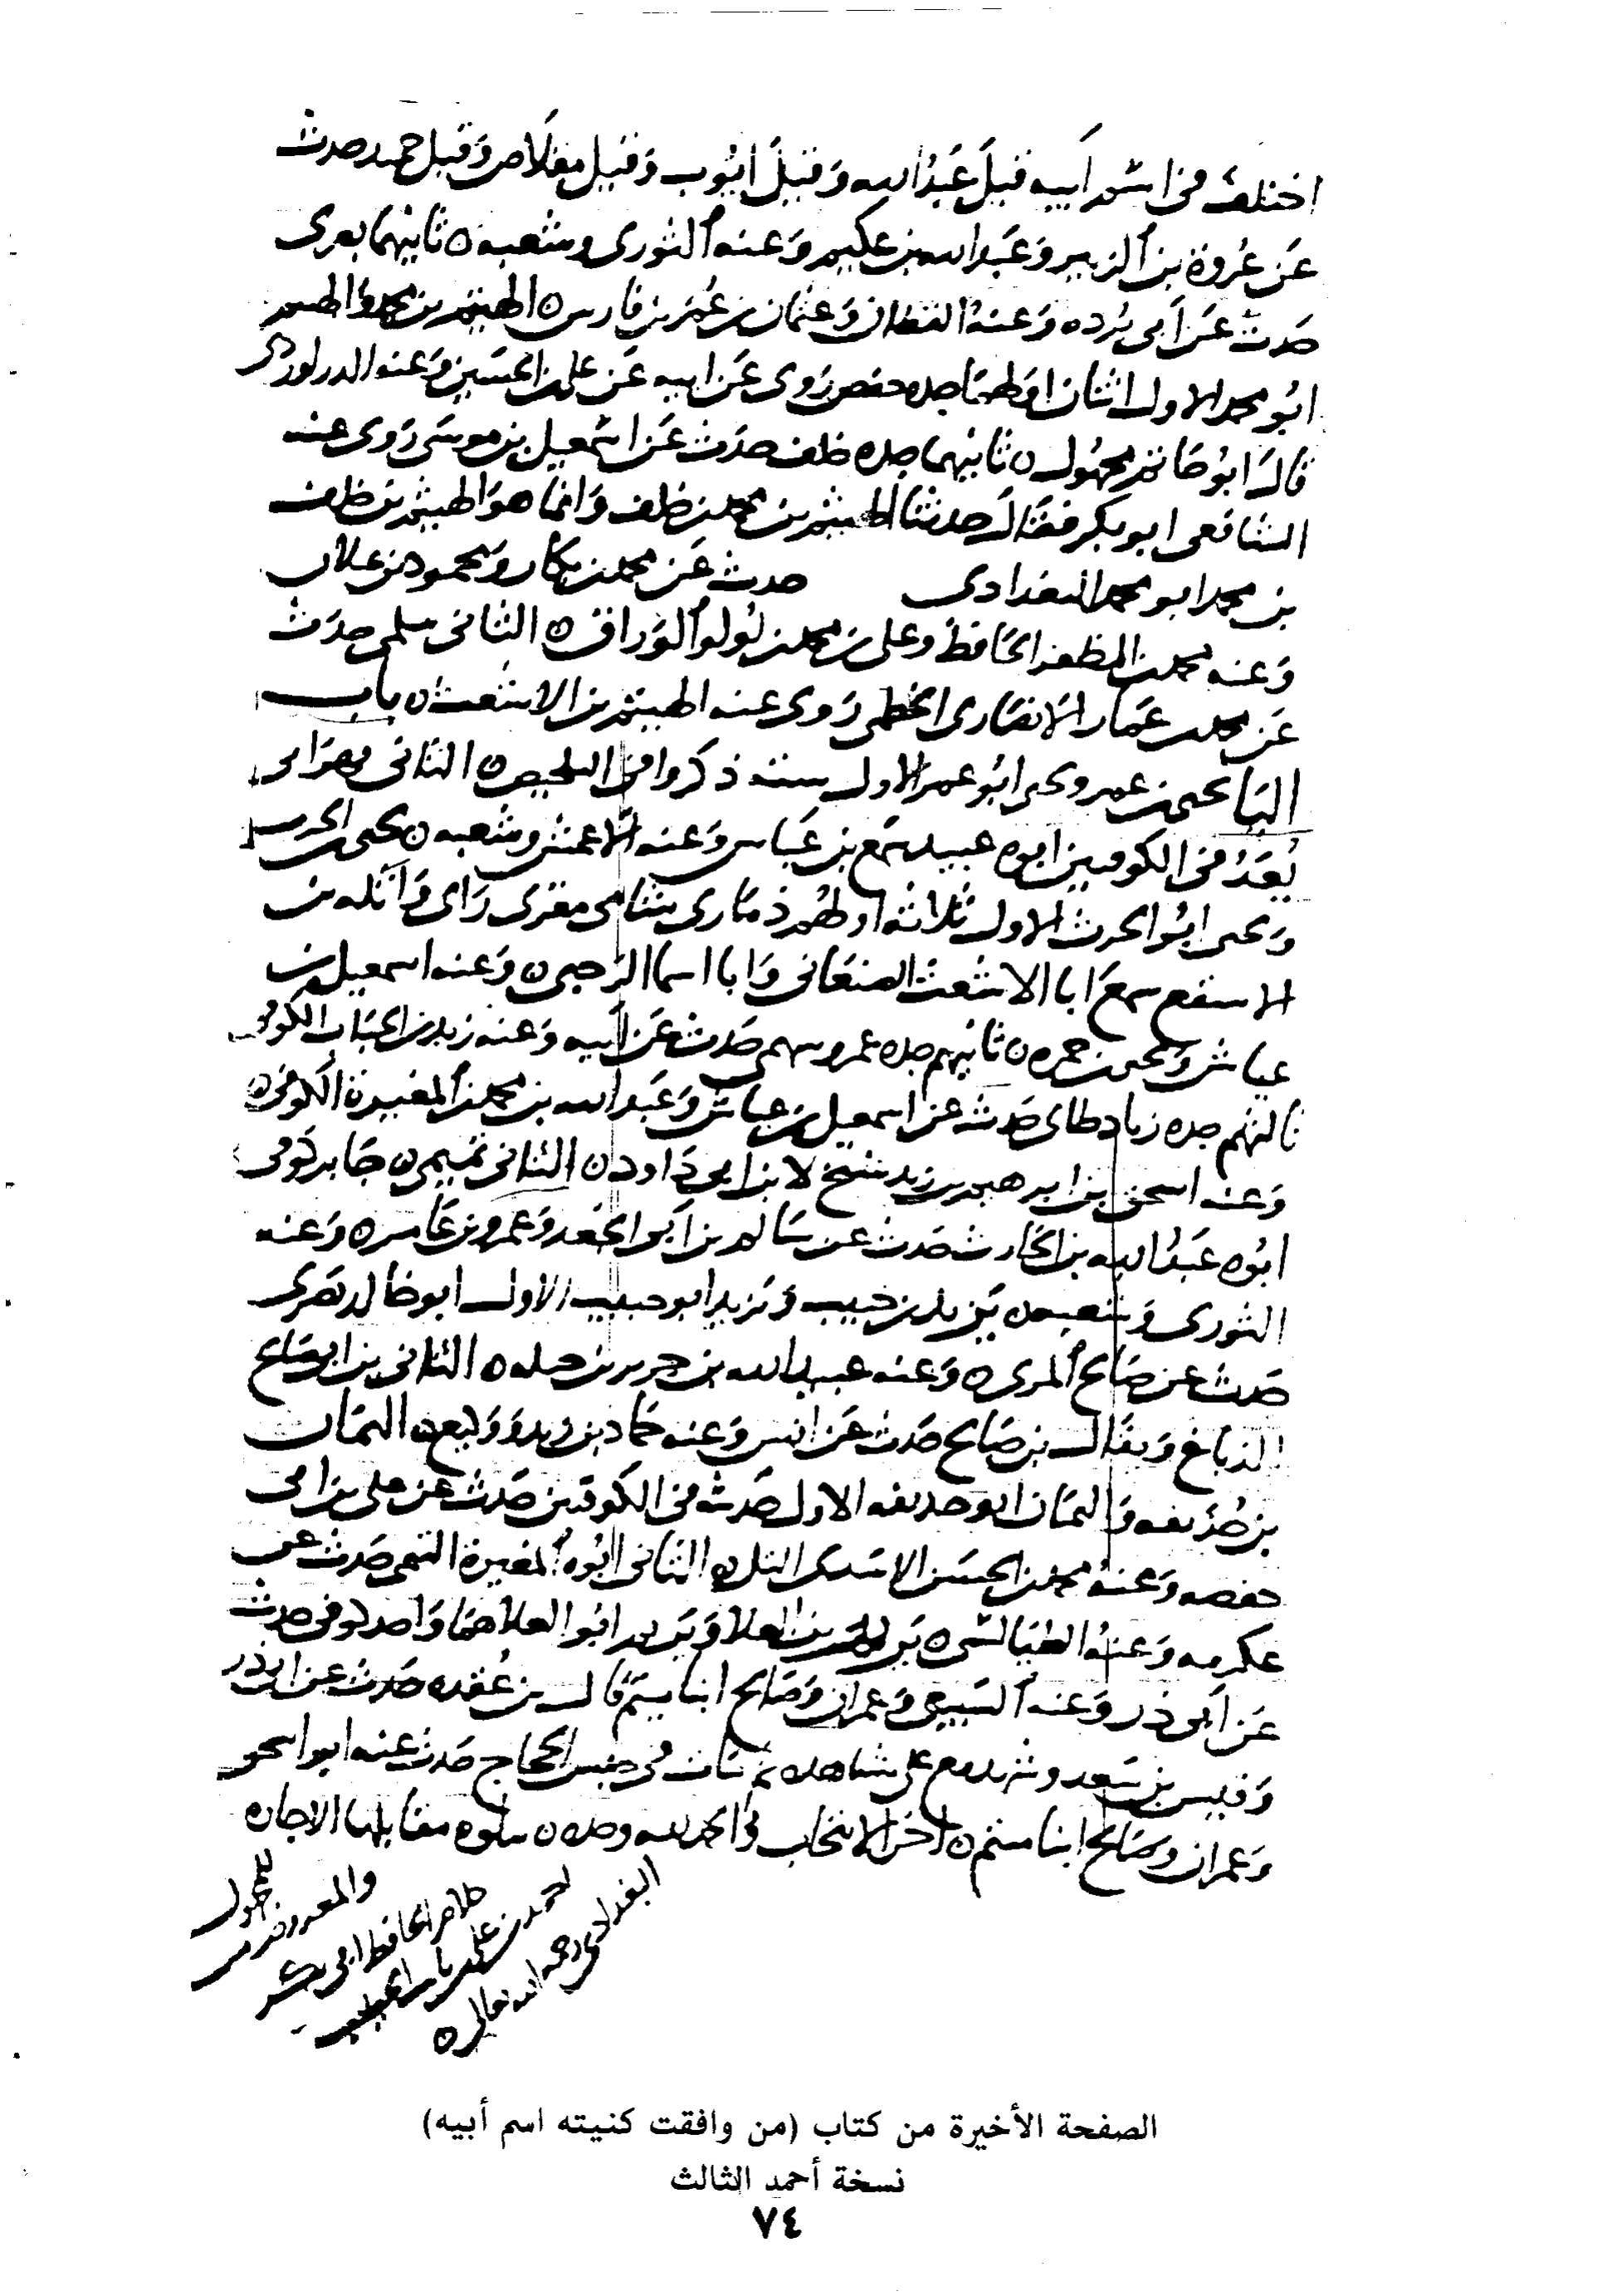 اختلف في اسم ابيه قيل عبد الله وقيل ايوب وقيل مقلاص وقيل حميد حدث
عن عروة بن الزبير وعبد الله بن عكيم وعنه الثوري وشعبه ه ثانيهما بصري
حدث عن ابي برده وعنه القطان وعثمان بن عمر بن فارس ه الهيثم بن محمد والهيثم
ابو محمد الاول اثنان اولهما جده حفص روى عن ابيه عن علي بن الحسين وعنه الدراوردي
قال ابو حاتم مجهول ه ثانيهما جده خلف حدث عن اسمعيل بن موسى روى عنه
الشافعي ابو بكر فقال حدثنا الهيثم بن محمد بن خلف وانما هو الهيثم بن خلف
بن محمد ابو محمد البغدادي حدث عن محمد بن بكار ومحمود بن غيلان
وعنه محمد بن المظفر الحافظ وعلي بن محمد بن لولو الوراق ه الثاني سلمي حدث
عن محمد بن عمار الانصاري الخطمي روى عنه الهيثم بن الاشعث ه باب
اليا يحيى بن عمرو ويحيى ابو عمر الاول ستة ذكروا في التلخيص ه الثاني بهراني
يعد في الكوفيين ابوه عبيد سمع بن عباس وعنه الاعمش وشعبه ه يحيى بن الحرث
ويحيى ابو الحرث الاول ثلاثه اولهم ذماري شامي مقري راى واثله بن
الاسقع سمع ابا الاشعث الصنعاني وابا اسما الرحبي ه وعنه اسمعيل بن
عياش ويحيى بن حمزه ه ثانيهم جده عمرو سهمي حدث عن ابيه وعنه زيد بن الحباب الكوفي
ثالثهم جده زياد طاي حدث عن اسمعيل بن عياش وعبد الله بن محمد بن المغيرة الكوفي ه
وعنه اسحق بن ابرهيم بن زيد شيخ لابن ابي داود ه الثاني تميمي ه جابر كوفي
ابوه عبد الله بن الحارث حدث عن سالم بن ابي الجعد وعمرو بن عامر ه وعنه
الثوري وشعبه ه يزيد بن حبيب ويزيد ابو حبيب الاول ابو خالد بصري
حدث عن صالح المري ه وعنه عبيد الله بن جرير بن جبله ه الثاني بن ابي صالح
الدباغ ويقال بن صالح حدث عن انس وعنه حماد بن زيد ووكيع ه اليمان
بن حذيفه واليمان ابو حذيفه الاول حدث في الكوفيين حدث عن علي بن ابي
حفصه وعنه محمد بن الحسن الاسدي التل ه الثاني ابوه المغيرة التيمي حدث عن
عكرمه وعنه الطيالسي ه يزيد بن العلا ويزيد ابو العلا هما واحد كوفي حدث
عن ابي ذر وعنه السبيعي وعمران وصالح ابنا ميثم قال بن عقده حدث عن ابي ذر
وقيس بن سعد وشهد مع علي مشاهده ثم مات في حبس الحجاج حدث عنه ابو اسحق
وعمران وصالح ابنا ميثم ه اخر الانتخاب والحمد لله وحده ه يتلوه مقابلها الاجازه
للمجهول
والمعدوم من
كلام الحافظ ابي بكر
احمد بن علي بن ثابت الخطيب
البغدادي رحمه الله تعالى ه
الصفحة الأخيرة من كتاب (من وافقت كنيته اسم أبيه)
نسخة أحمد الثالث
٧٤